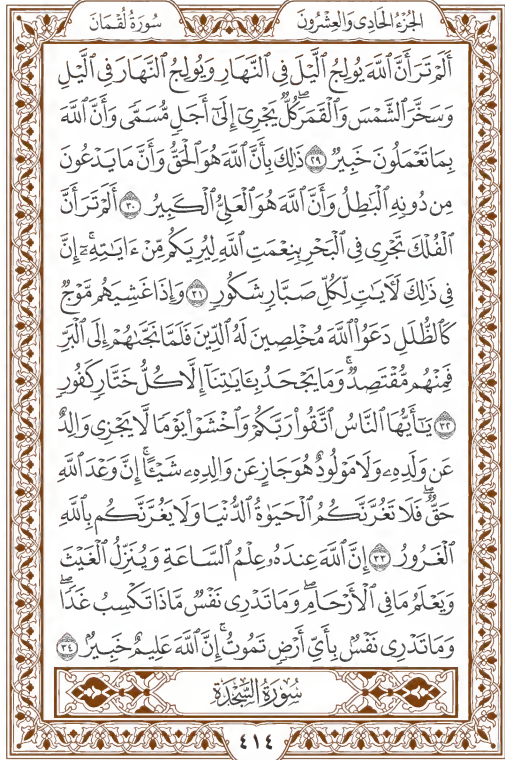 سُورَةُ لُقْمَان
الجُزْءُ الحَادِى وَالعِشْرُونَ
أَلَمْ تَرَ أَنَّ ٱللَّهَ يُولِجُ ٱلَّيْلَ فِى ٱلنَّهَارِ وَيُولِجُ ٱلنَّهَارَ فِى ٱلَّيْلِ
وَسَخَّرَ ٱلشَّمْسَ وَٱلْقَمَرَۖ كُلٌّ يَجْرِىٓ إِلَىٰٓ أَجَلٍ مُّسَمًّى وَأَنَّ ٱللَّهَ
بِمَا تَعْمَلُونَ خَبِيرٌ ٢٩ ذَٰلِكَ بِأَنَّ ٱللَّهَ هُوَ ٱلْحَقُّ وَأَنَّ مَا يَدْعُونَ
مِن دُونِهِ ٱلْبَٰطِلُ وَأَنَّ ٱللَّهَ هُوَ ٱلْعَلِىُّ ٱلْكَبِيرُ ٣٠ أَلَمْ تَرَ أَنَّ
ٱلْفُلْكَ تَجْرِى فِى ٱلْبَحْرِ بِنِعْمَتِ ٱللَّهِ لِيُرِيَكُم مِّنْ ءَايَٰتِهِۦٓۚ إِنَّ
فِى ذَٰلِكَ لَءَايَٰتٍ لِّكُلِّ صَبَّارٍ شَكُورٍ ٣١ وَإِذَا غَشِيَهُم مَّوْجٌ
كَٱلظُّلَلِ دَعَوُا۟ ٱللَّهَ مُخْلِصِينَ لَهُ ٱلدِّينَ فَلَمَّا نَجَّىٰهُمْ إِلَى ٱلْبَرِّ
فَمِنْهُم مُّقْتَصِدٌۚ وَمَا يَجْحَدُ بِـَٔايَٰتِنَآ إِلَّا كُلُّ خَتَّارٍ كَفُورٍ
٣٢ يَٰٓأَيُّهَا ٱلنَّاسُ ٱتَّقُوا۟ رَبَّكُمْ وَٱخْشَوْا۟ يَوْمًا لَّا يَجْزِى وَالِدٌ
عَن وَلَدِهِۦ وَلَا مَوْلُودٌ هُوَ جَازٍ عَن وَالِدِهِۦ شَيْـًٔاۚ إِنَّ وَعْدَ ٱللَّهِ
حَقٌّۖ فَلَا تَغُرَّنَّكُمُ ٱلْحَيَوٰةُ ٱلدُّنْيَا وَلَا يَغُرَّنَّكُم بِٱللَّهِ
ٱلْغَرُورُ ٣٣ إِنَّ ٱللَّهَ عِندَهُۥ عِلْمُ ٱلسَّاعَةِ وَيُنَزِّلُ ٱلْغَيْثَ
وَيَعْلَمُ مَا فِى ٱلْأَرْحَامِۖ وَمَا تَدْرِى نَفْسٌ مَّاذَا تَكْسِبُ غَدًاۖ
وَمَا تَدْرِى نَفْسٌۢ بِأَىِّ أَرْضٍ تَمُوتُۚ إِنَّ ٱللَّهَ عَلِيمٌ خَبِيرٌۢ ٣٤
سُورَةُ السَّجْدَةِ
٤١٤